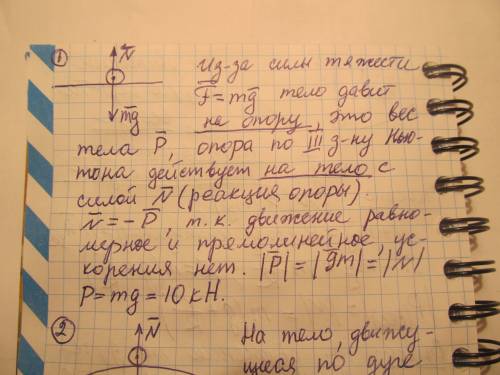 ① N̄
Из-за силы тяжести
F̄=mḡ тело давит
mḡ на опору, это вес
тела P̄, опора по III з-ну Нью-
тона действует на тело с
силой N̄ (реакция опоры).
N̄=-P̄, т.к. движение равно-
мерное и прямолинейное, ус-
корения нет. |P̄|=|ḡm|=|N̄|
P=mg=10кН.
② N̄
На тело, движу-
щееся по дуге